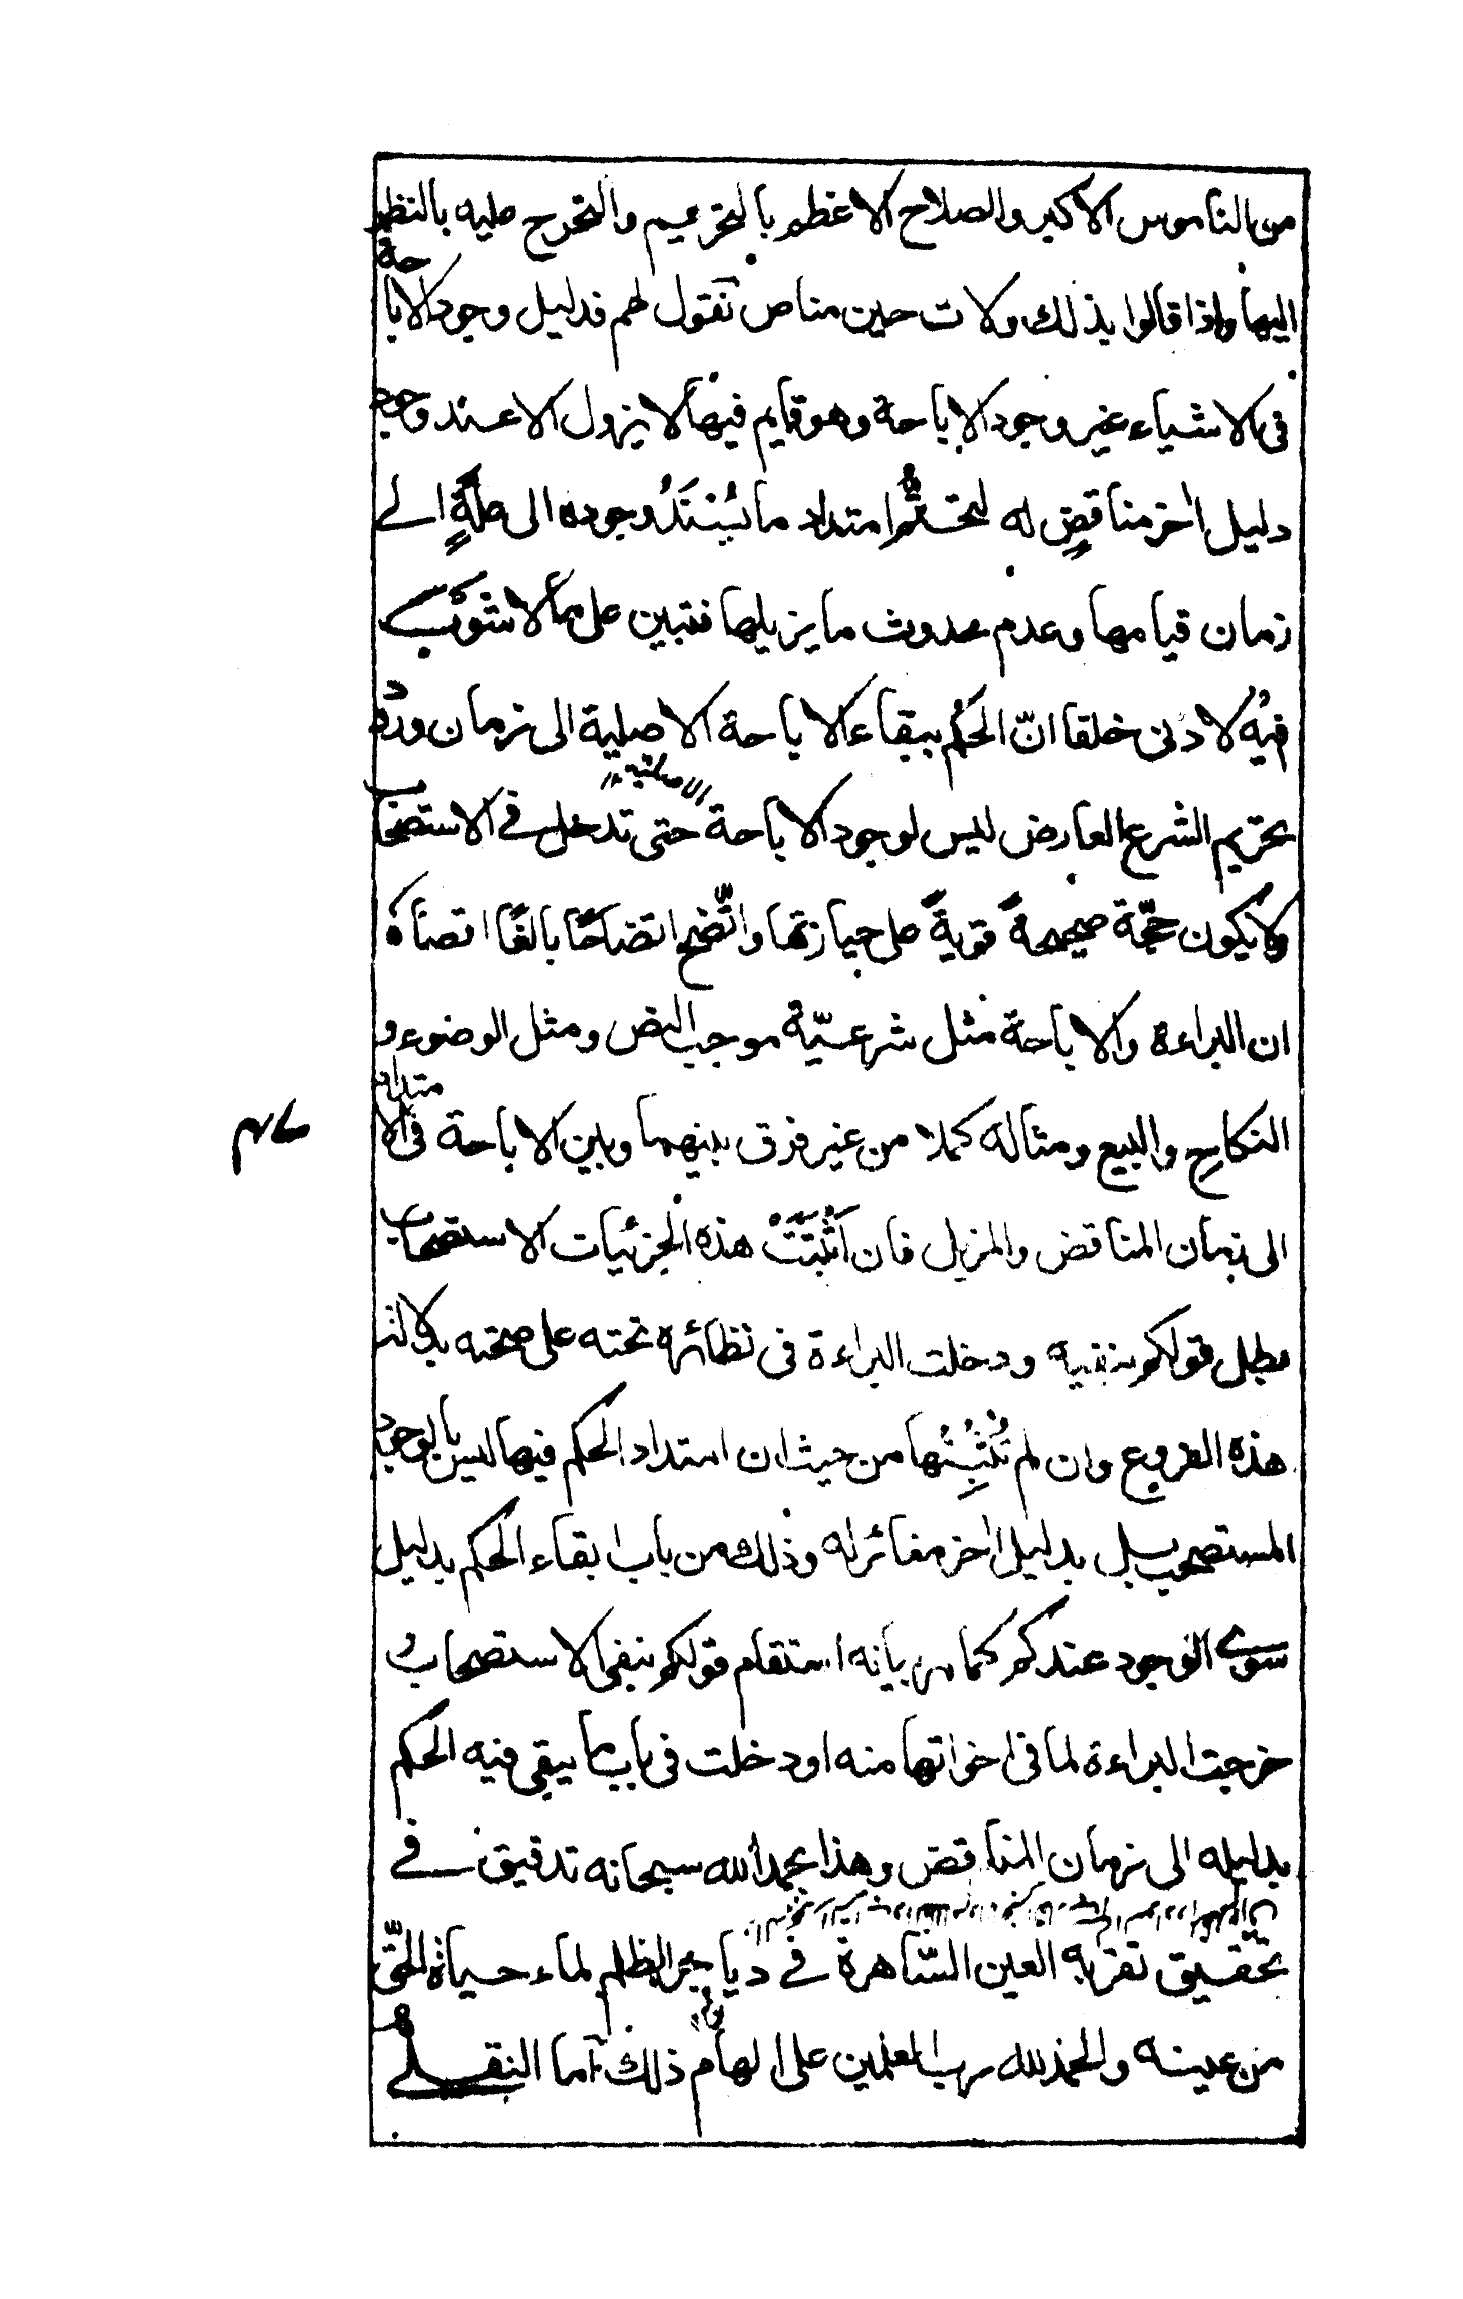 من الناموس الاكبر والصلاح الاعظم بالتحريم والتحرج عليه بالنظر
اليها واذا قالوا بذلك ولات حين مناص نقول لهم فدليل وجود الاباحة
فى الاشياء غير وجود الاباحة وهو قايم فيها لا يزول الا عند وجود
دليل اخر مناقض له امتداد ما يستند وجوده الى علة الى
زمان قيامها وعدم حدوث ما يزيلها فتبين على ما لا شوب
فيه لا دنى خلقا انّ الحكم ببقاء الاباحة الاصلية الى زمان ورود
تحريم الشرع العارض ليس لوجود الاباحة الاصلية حتى تدخل فى الاستصحاب
ولا يكون حجّة صحيحةً قويةً على حيازتها واتّضح اتضاحًا بالغًا اقصاه
ان البراءة والاباحة مثل شرعيّة موجب النص ومثل الوضوء و
النكاح والبيع ومثاله كملا من غير فرق بينهما وبين الاباحة فى الامتداد
الى زمان المناقض والمزيل فان اثبتت هذه الجزئيات الاستصحاب
بطل قولكم بنفيه ودخلت البراءة فى نظائره تحته على صحته بدلالة
هذه الفروع وان لم تثبتها من حيث ان امتداد الحكم فيها ليس بالوجود
المستصحب بل بدليل اخر مغائر له وذلك من باب ابقاء الحكم بدليل
سوى الوجود عندكم كما مر بيانه استقام قولكم بنفى الاستصحاب و
خرجت البراءة لما فى اخواتها منه او دخلت فى باب ما يبقى فيه الحكم
بدليله الى زمان المناقض وهذا بحمد الله سبحانه تدقيق فى
تحقيق تقر به العين السّاهرة فى دياجر الظلم لماء حياة الحقّ
من عينه والحمد لله رب العلمين على الهام ذلك اما النقلى